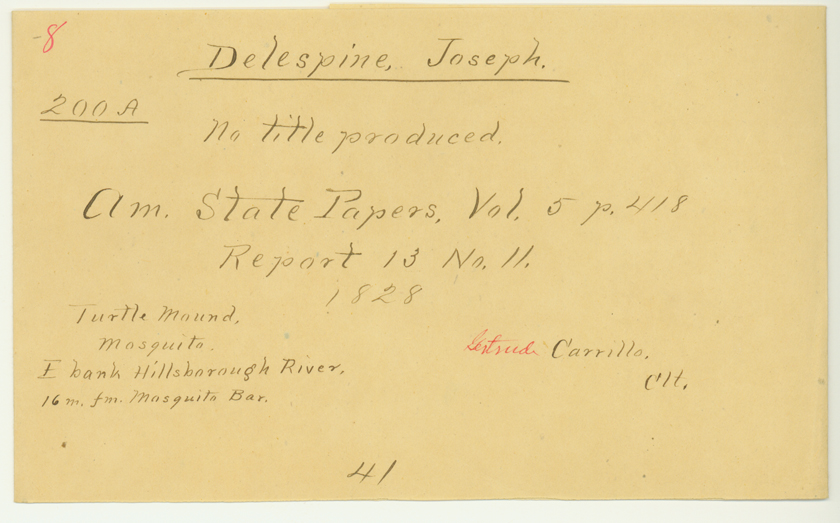 -8
Delespine, Joseph.
200 A
No title produced.
Am. State Papers, Vol. 5 p. 418
Report 13 No. 11.
1828
Turtle Mound,
Mosquito.
E bank Hillsborough River,
16 m. fm. Mosquito Bar.
Gertrude Carrillo.
Clt.
41